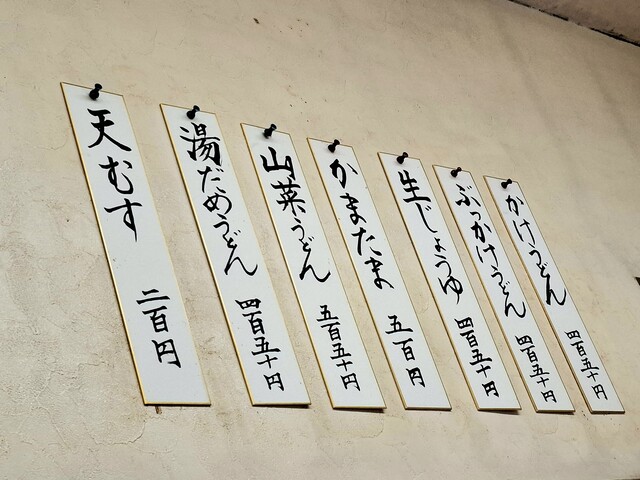 かけうどん 四百五十円
ぶっかけうどん 四百五十円
生じょうゆ 四百五十円
かまたま 五百円
山菜うどん 五百五十円
湯だめうどん 四百五十円
天むす 二百円